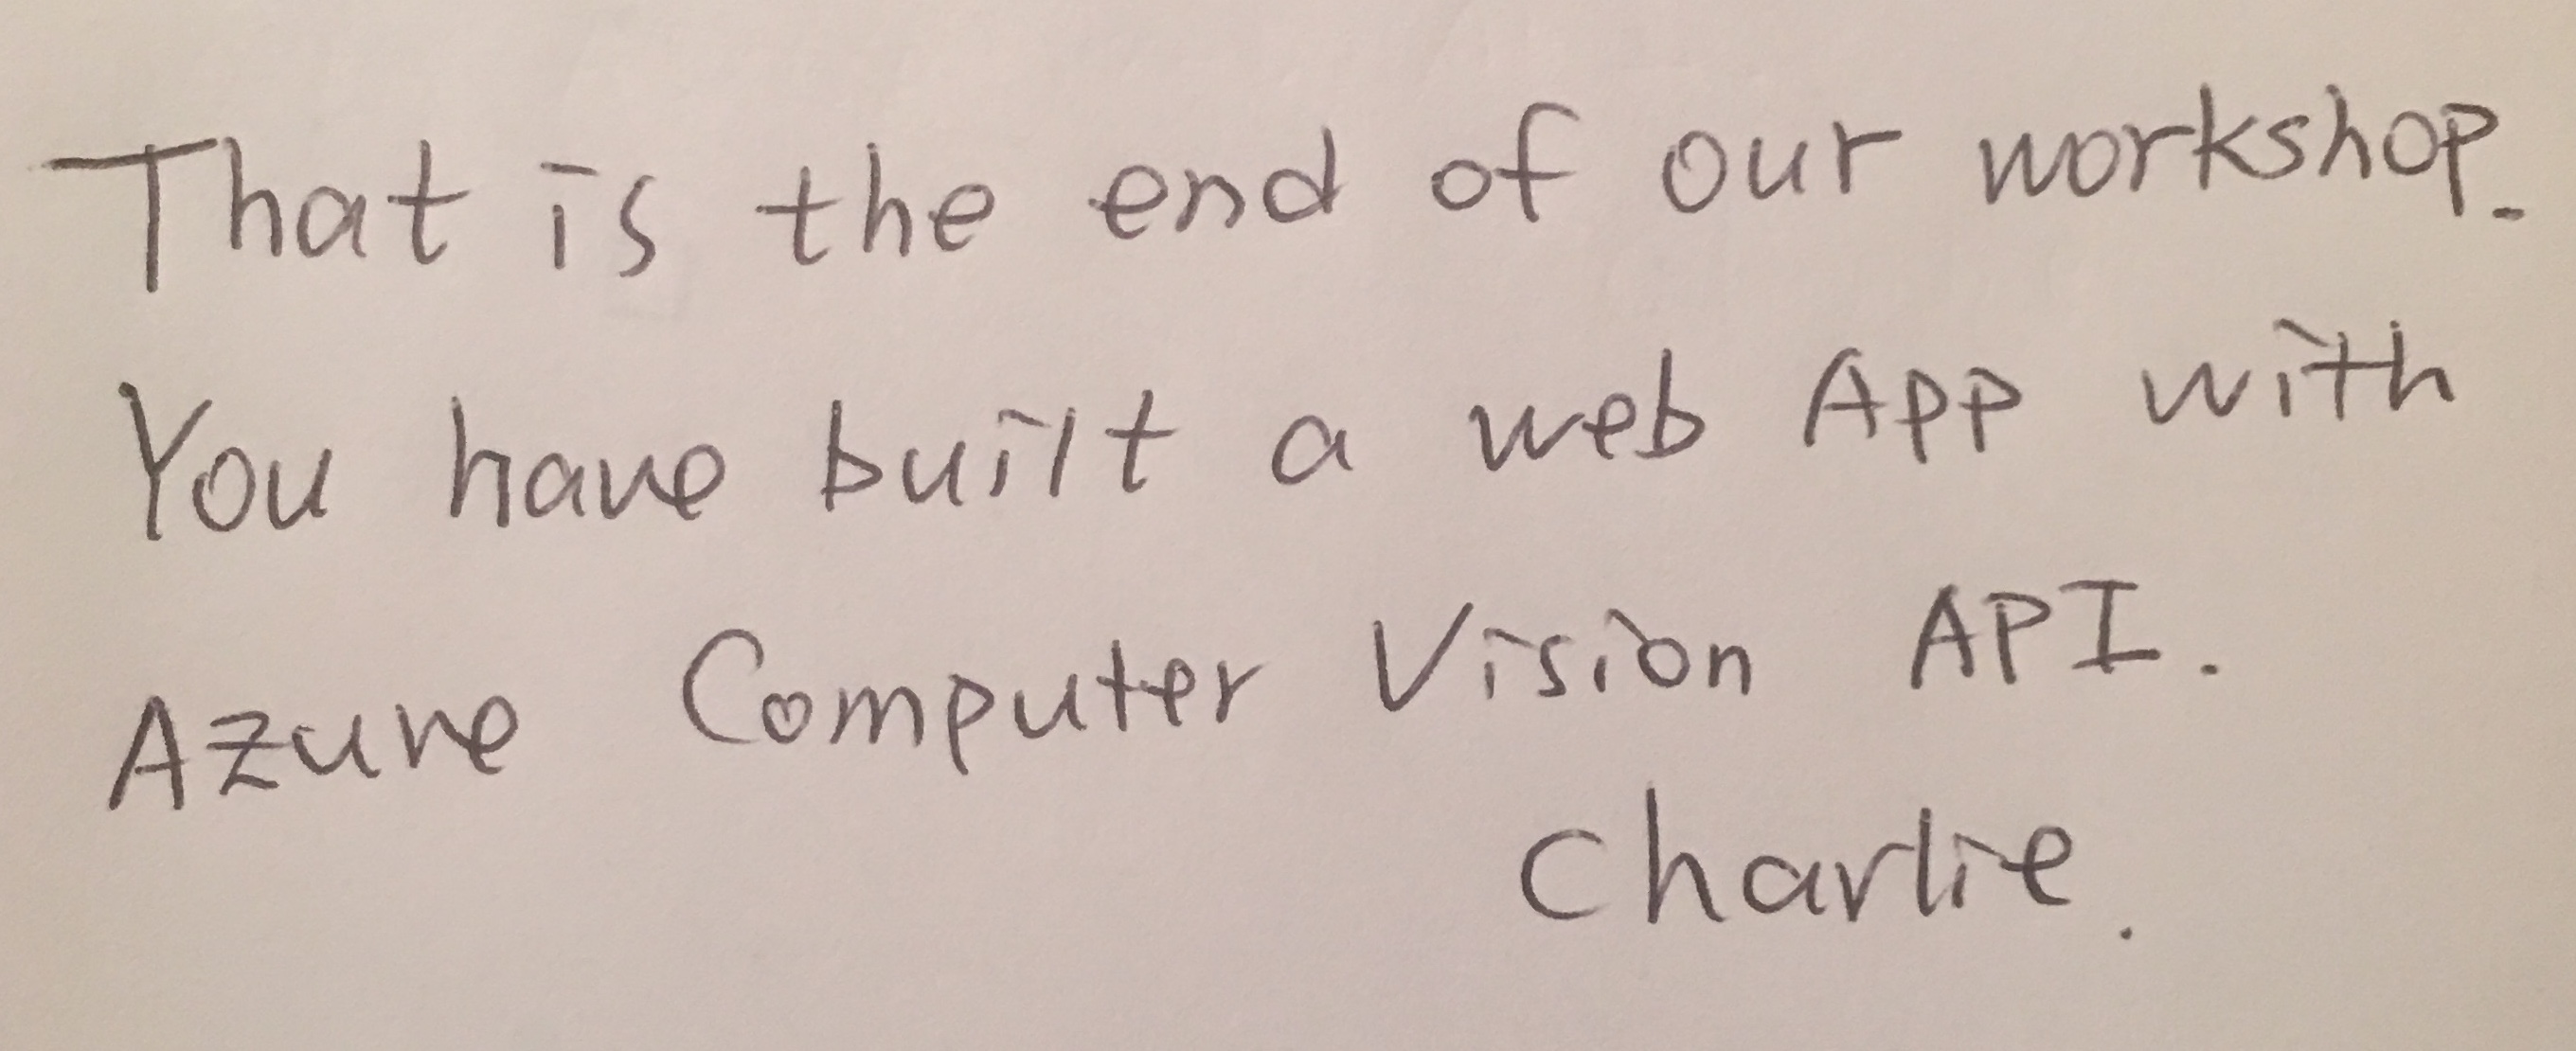 That is the end of our workshop.
You have built a web App with
Azure Computer Vision API.
Charlie.